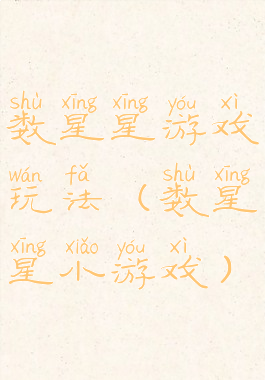 shù xīng xīng yóu xì
数星星游戏
wán fǎ shù xīng
玩法（数星
xīng xiǎo yóu xì
星小游戏）